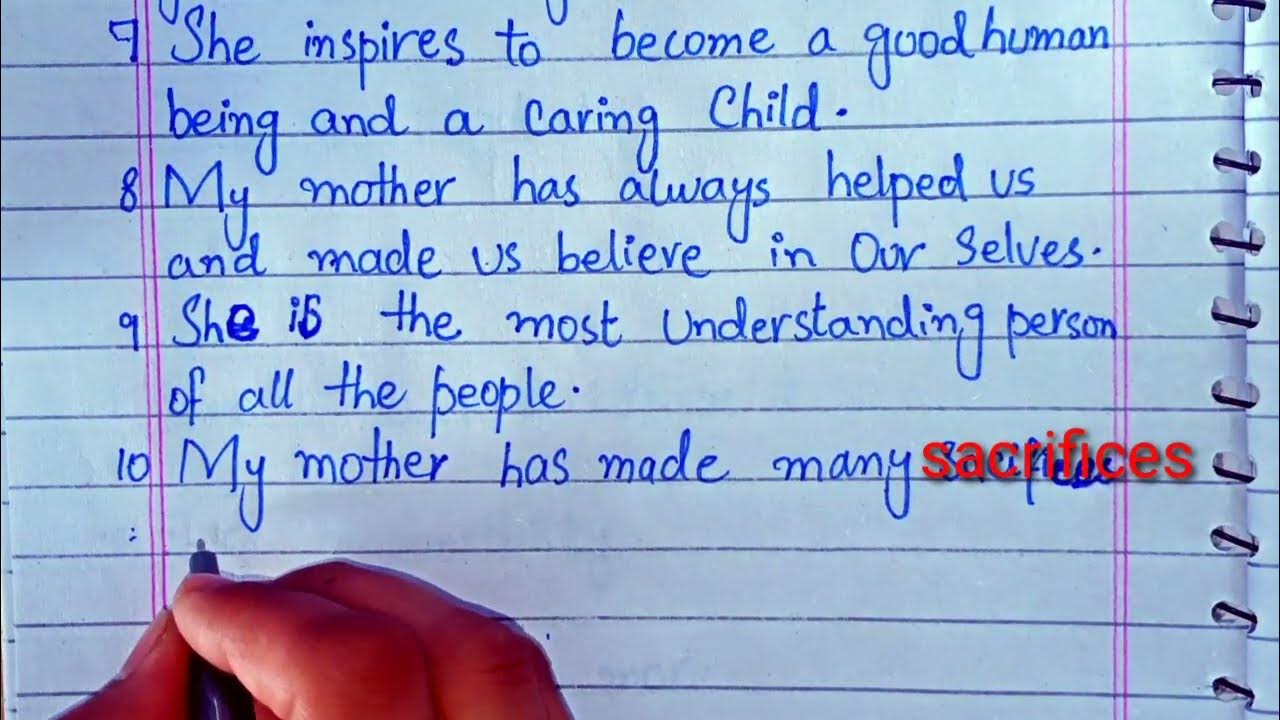 7 She inspires to become a good human
being and a caring Child.
8 My mother has always helped us
and made us believe in Our Selves.
9 She is the most Understanding person
of all the people.
10 My mother has made many sacrifices